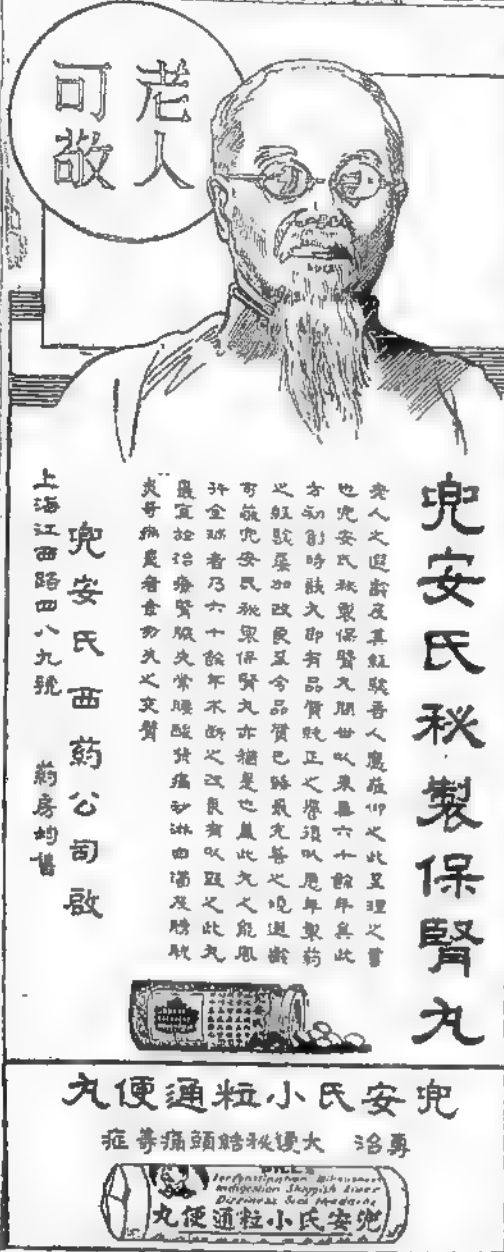 老人
可敬
兜安氏秘製保腎丸
老人之遐齡及其經驗吾人應敬仰之此至理之言
也兜安氏秘製保腎丸問世以來垂六十餘年其此
方初創時該丸即有品質純正之譽須以歷年製藥
之經驗藥加改良至今品質已臻最完善之境遐齡
可敬兜安氏秘製保腎丸亦猶是也蓋此丸之能風
行全球者乃六十餘年不斷之改良有以致之此丸
最宜於治療腎臟失常腰酸背痛砂淋白濁及膀胱
炎等病患者意勿失之交臂
兜安氏西藥公司啟
上海江西路四八九號 藥房均售
兜安氏小粒通便丸
專治 大便秘結頭痛等症
PILLS
For Constipation Biliousness
Indigestion Sluggish Liver
Dizziness Sick Headache
兜安氏小粒通便丸